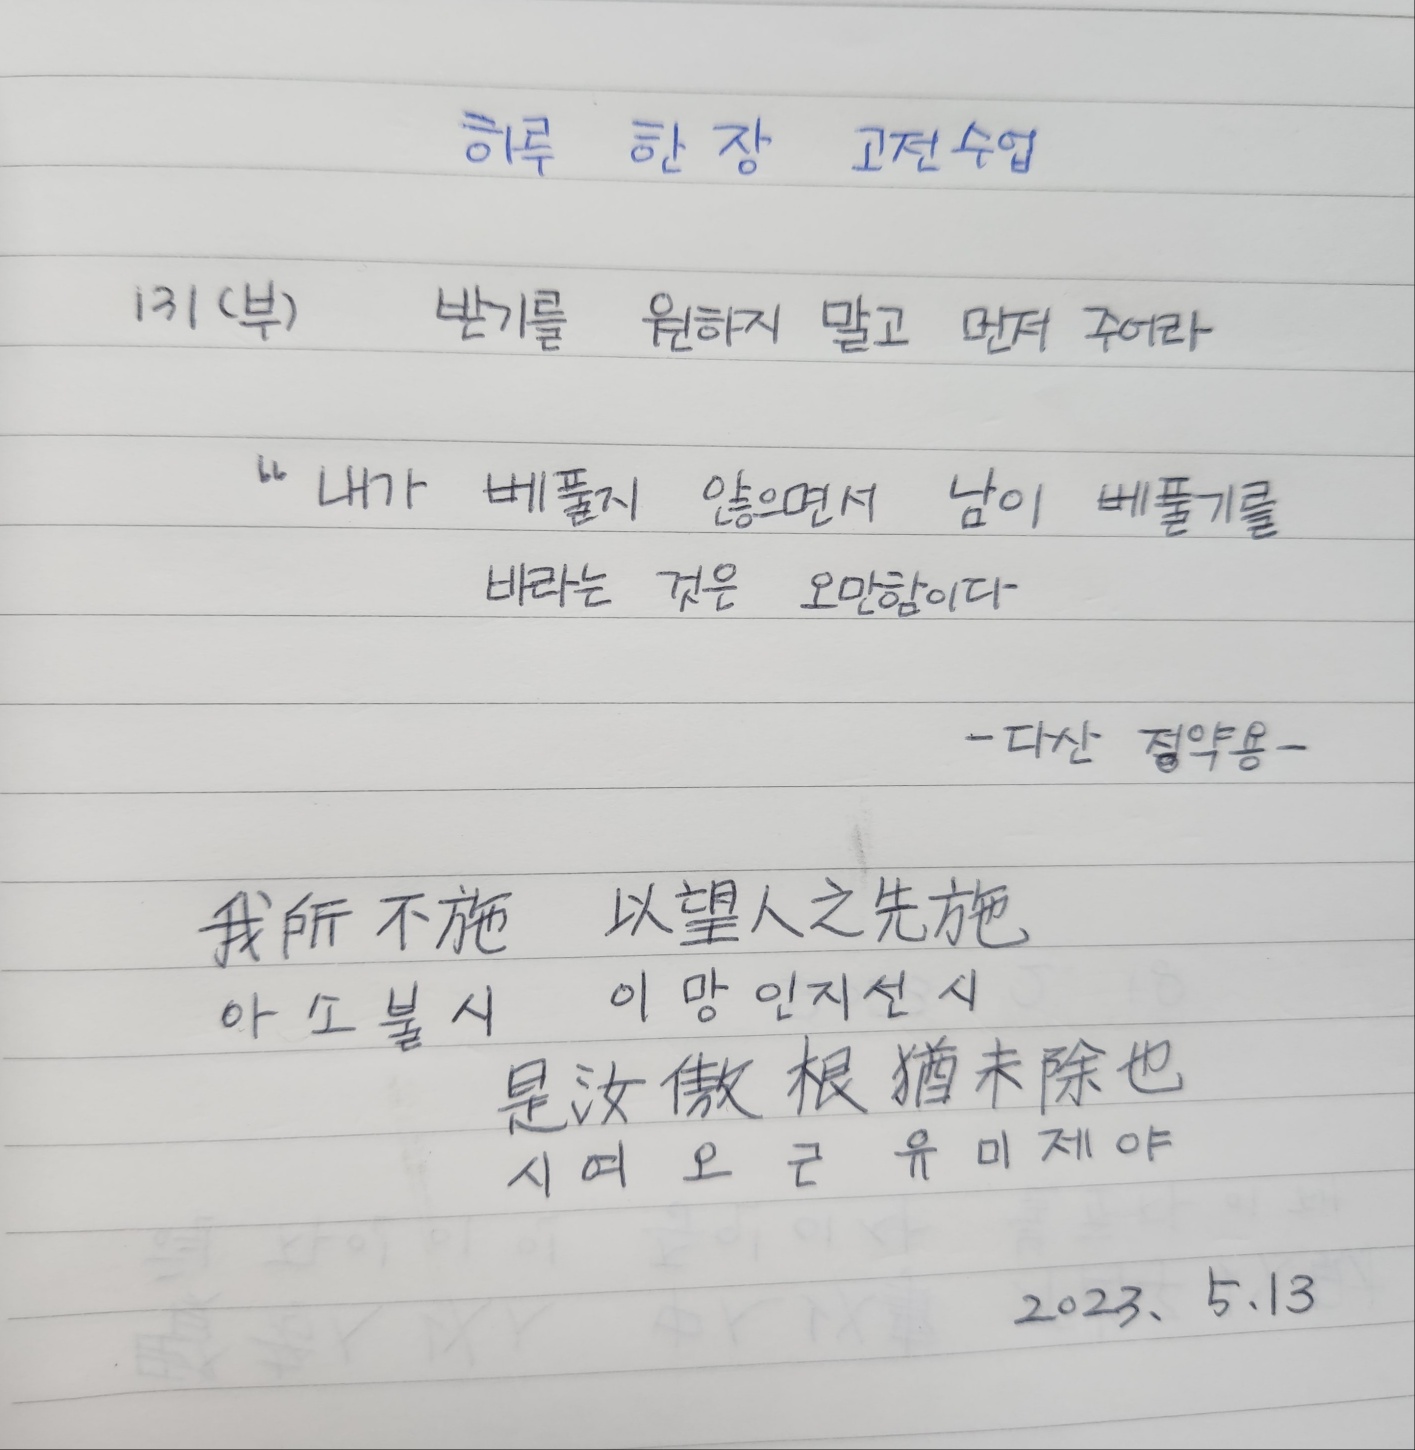 하루 한 장 고전수업
131(부) 받기를 원하지 말고 먼저 주어라
“ 내가 베풀지 않으면서 남이 베풀기를
바라는 것은 오만함이다
-다산 정약용-
我所不施 以望人之先施
아소불시 이망인지선시
是汝傲根猶未除也
시여오근유미제야
2023. 5.13